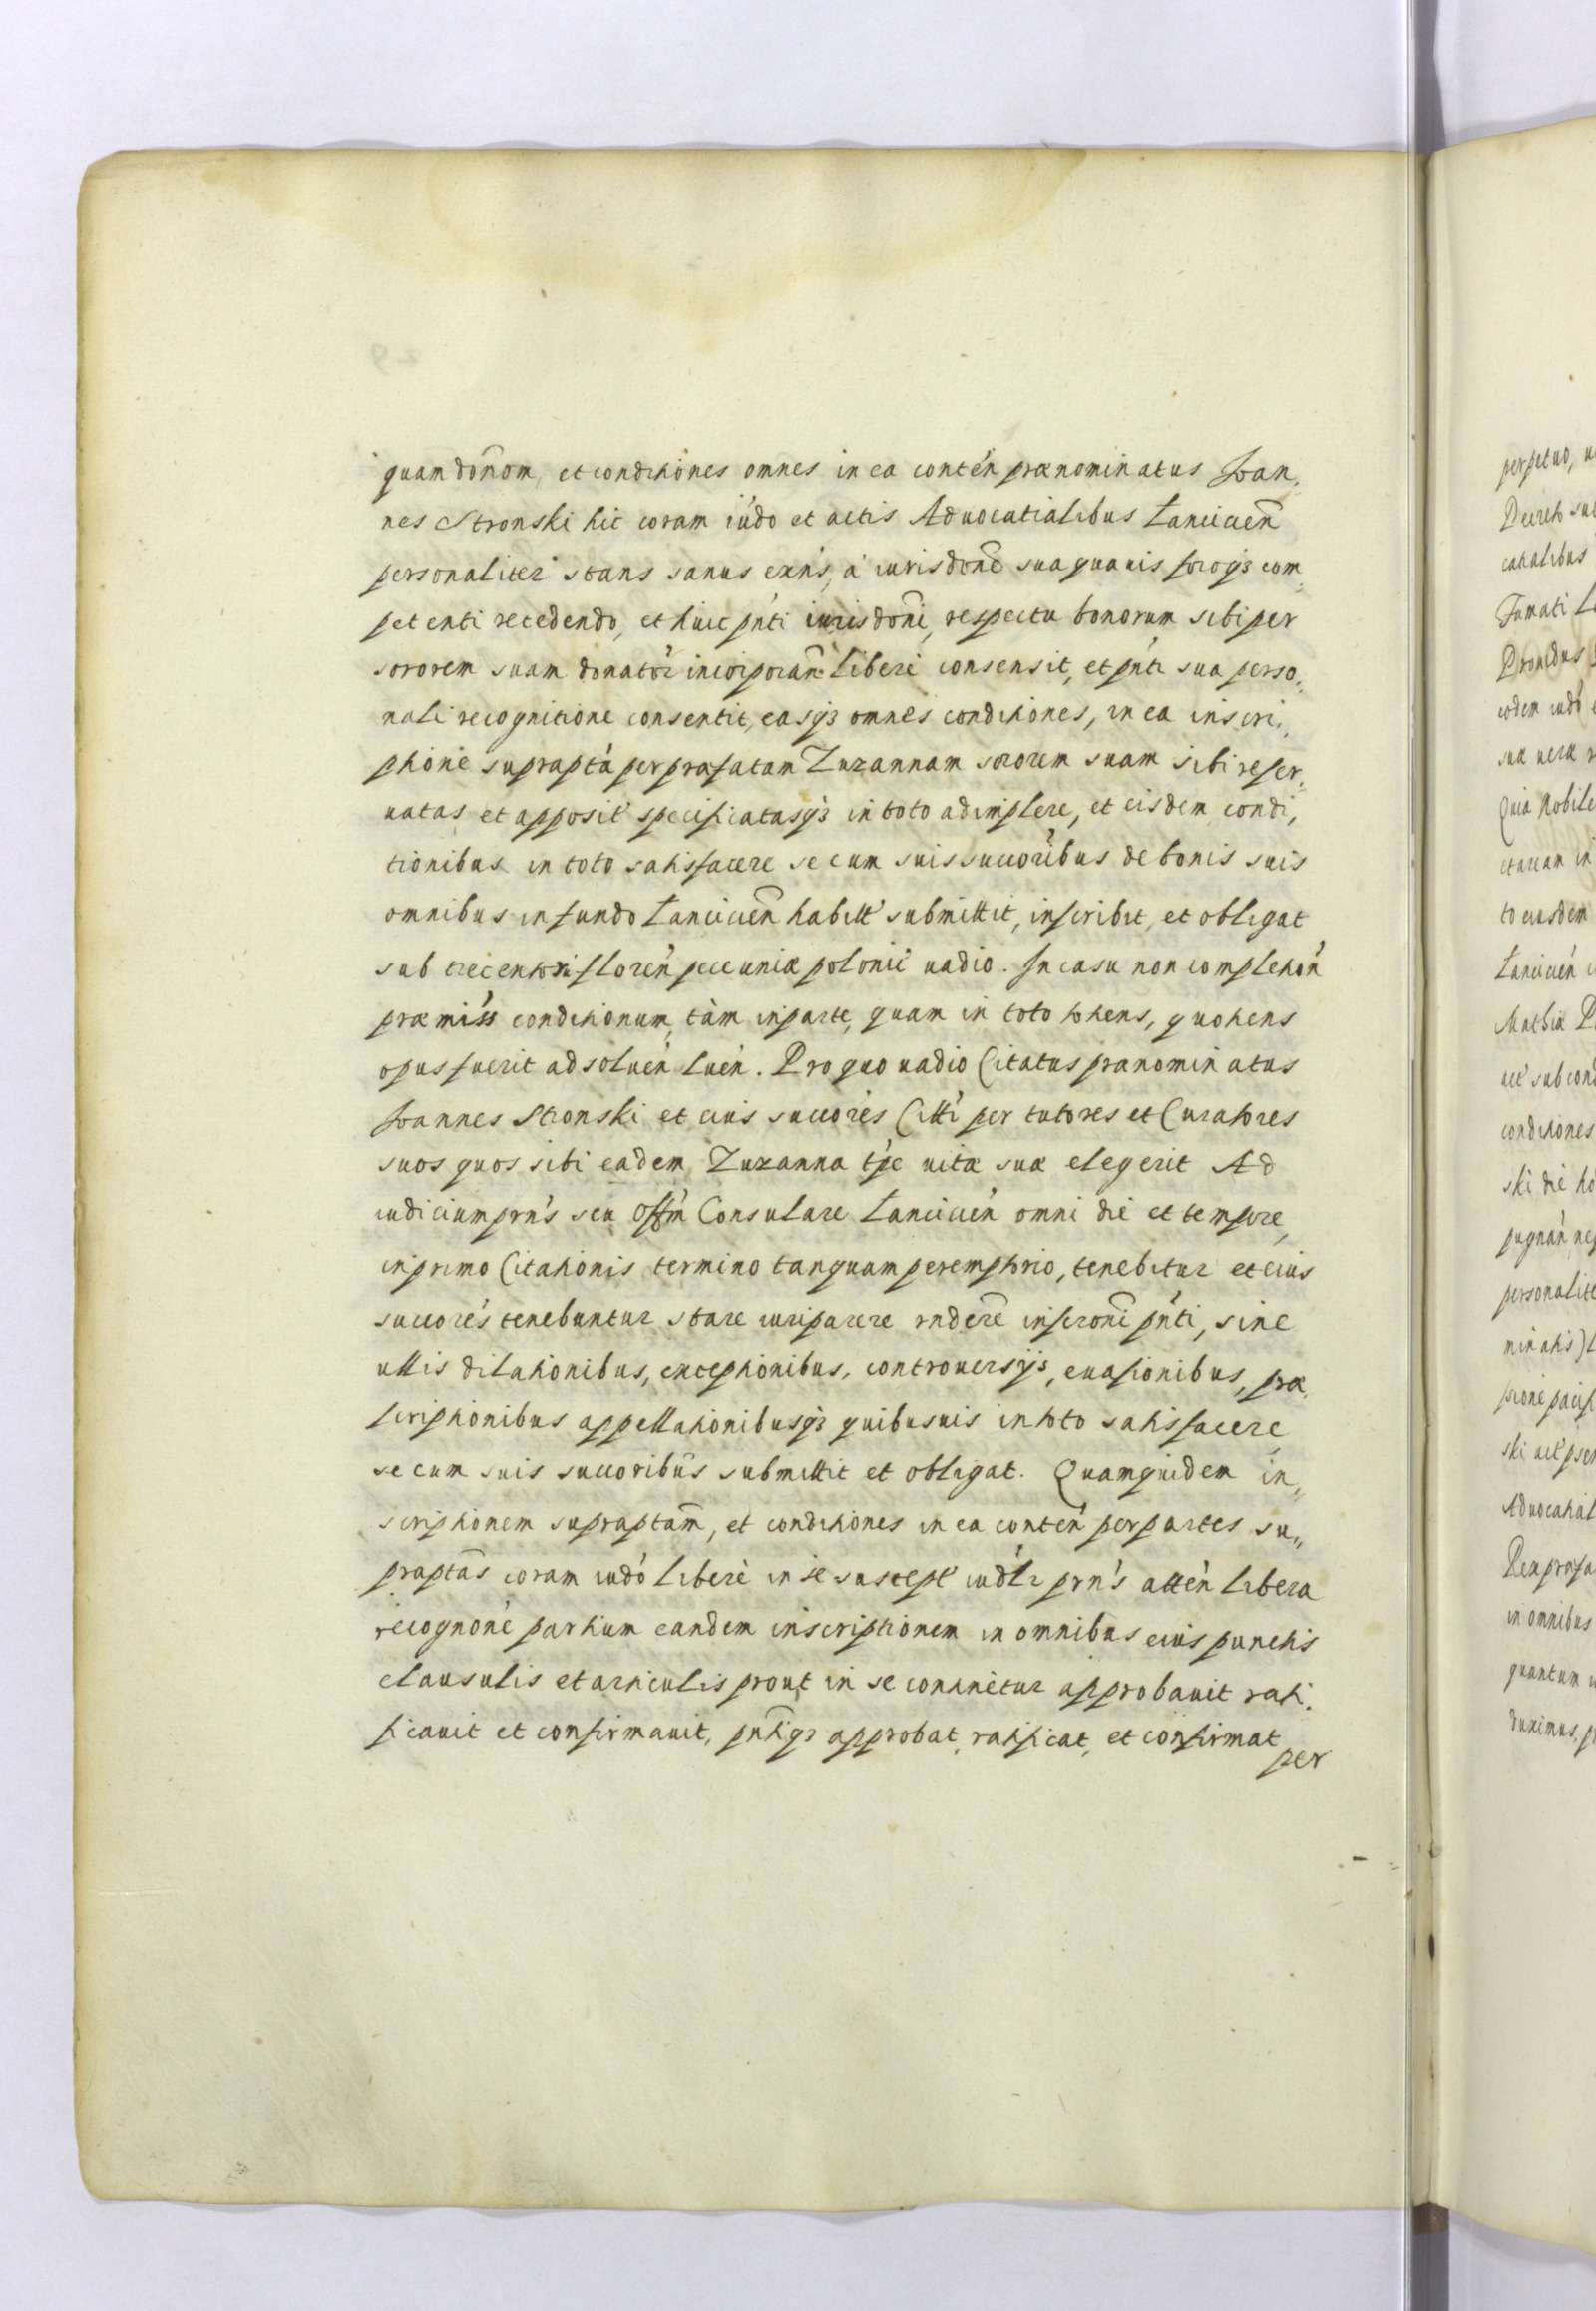 quam don̄om, et conditiones omnes in ea conten̄ prænominatus Joan,
nes Stronski hic coram iudo et actis Aduocatialibus Lancicien̄
personaliter stans sanus exn̄s, à iurisdon̄e sua quauis foroq3 com,
petenti recedendo, et huic pn̄ti iurisdon̄i, respectu bonorum sibi per
sororem suam donator incorporan̄ liberè consensit, et pn̄ti sua perso,
nali recognitione consentit, easq3 omnes conditiones, in ea inscri,
ptione supraptà per præfatam Zuzannam sororem suam sibi reser,
uatas et apposit specificatasq3 in toto adimplere, et eisdem condi,
tionibus in toto satisfacere se cum suis succoribus de bonis suis
omnibus in fundo Lancicien̄ habitt submittit, inscribit, et obligat
sub trecentori floren̄ pecuniæ polonic uadio. In casu non completion̄
præmiss conditionum, tàm in parte, quam in toto totiens, quotiens
opus fuerit ad soluen̄ luen̄. Pro quo uadio Citatus prænominatus
Joannes Stronski et eius succores Citti per tutores et Curatores
suos quos sibi eadem Zuzanna tpe uitæ suæ elegerit Ad
iudicium prn̄s seu Offm Consulare Lancicien̄ omni die et tempore,
in primo Citationis termino tanquam peremptorio, tenebitur et eius
succores tenebuntur stare iuri parere rndere inscron̄i pn̄ti, sine
ullis dilationibus, exceptionibus, controuersijs, euasionibus, præ,
scriptionibus appellationibusq3 quibusuis in toto satisfacere
se cum suis succoribus submittit et obligat. Quam quidem in,,
scriptionem supraptam̄, et conditiones in ea conten̄ per partes su,,
praptas coram iudo liberè in se suscept iudlr prn̄s atten̄ libera
recognon̄e partium eandem inscriptionem in omnibus eius punctis
clausulis et articulis prout in se continetur approbauit rati,
ficauit et confirmauit, pn̄tiq3 approbat, ratificat, et confirmat
per
perpetuo,
Decreto
Famati
Prouidus
eodem iudo
Quia Nobile
to eiusdem
Lancicien̄
Mathiæ
conditiones
in omnibus
quantum
duximus,